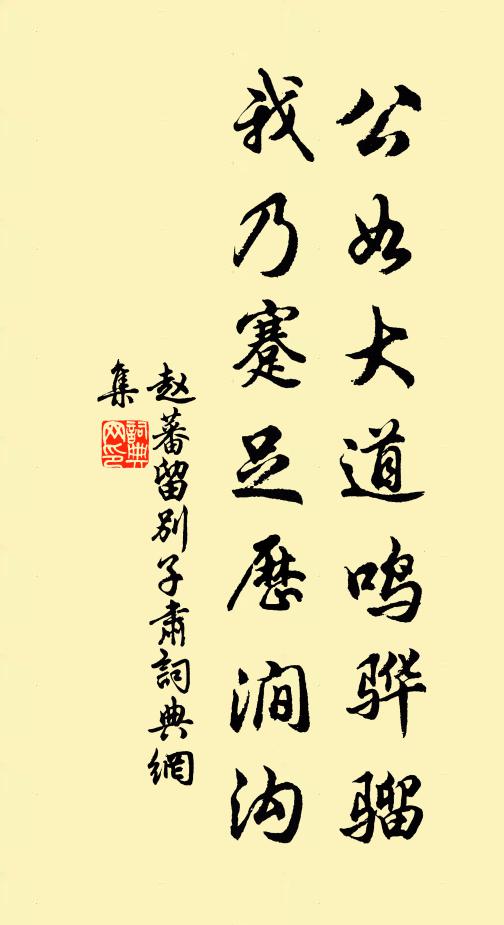 公如大道鸣骅骝
我乃蹇足歷涧沟
赵蕃留别子肃詞典網
集
詞典网印